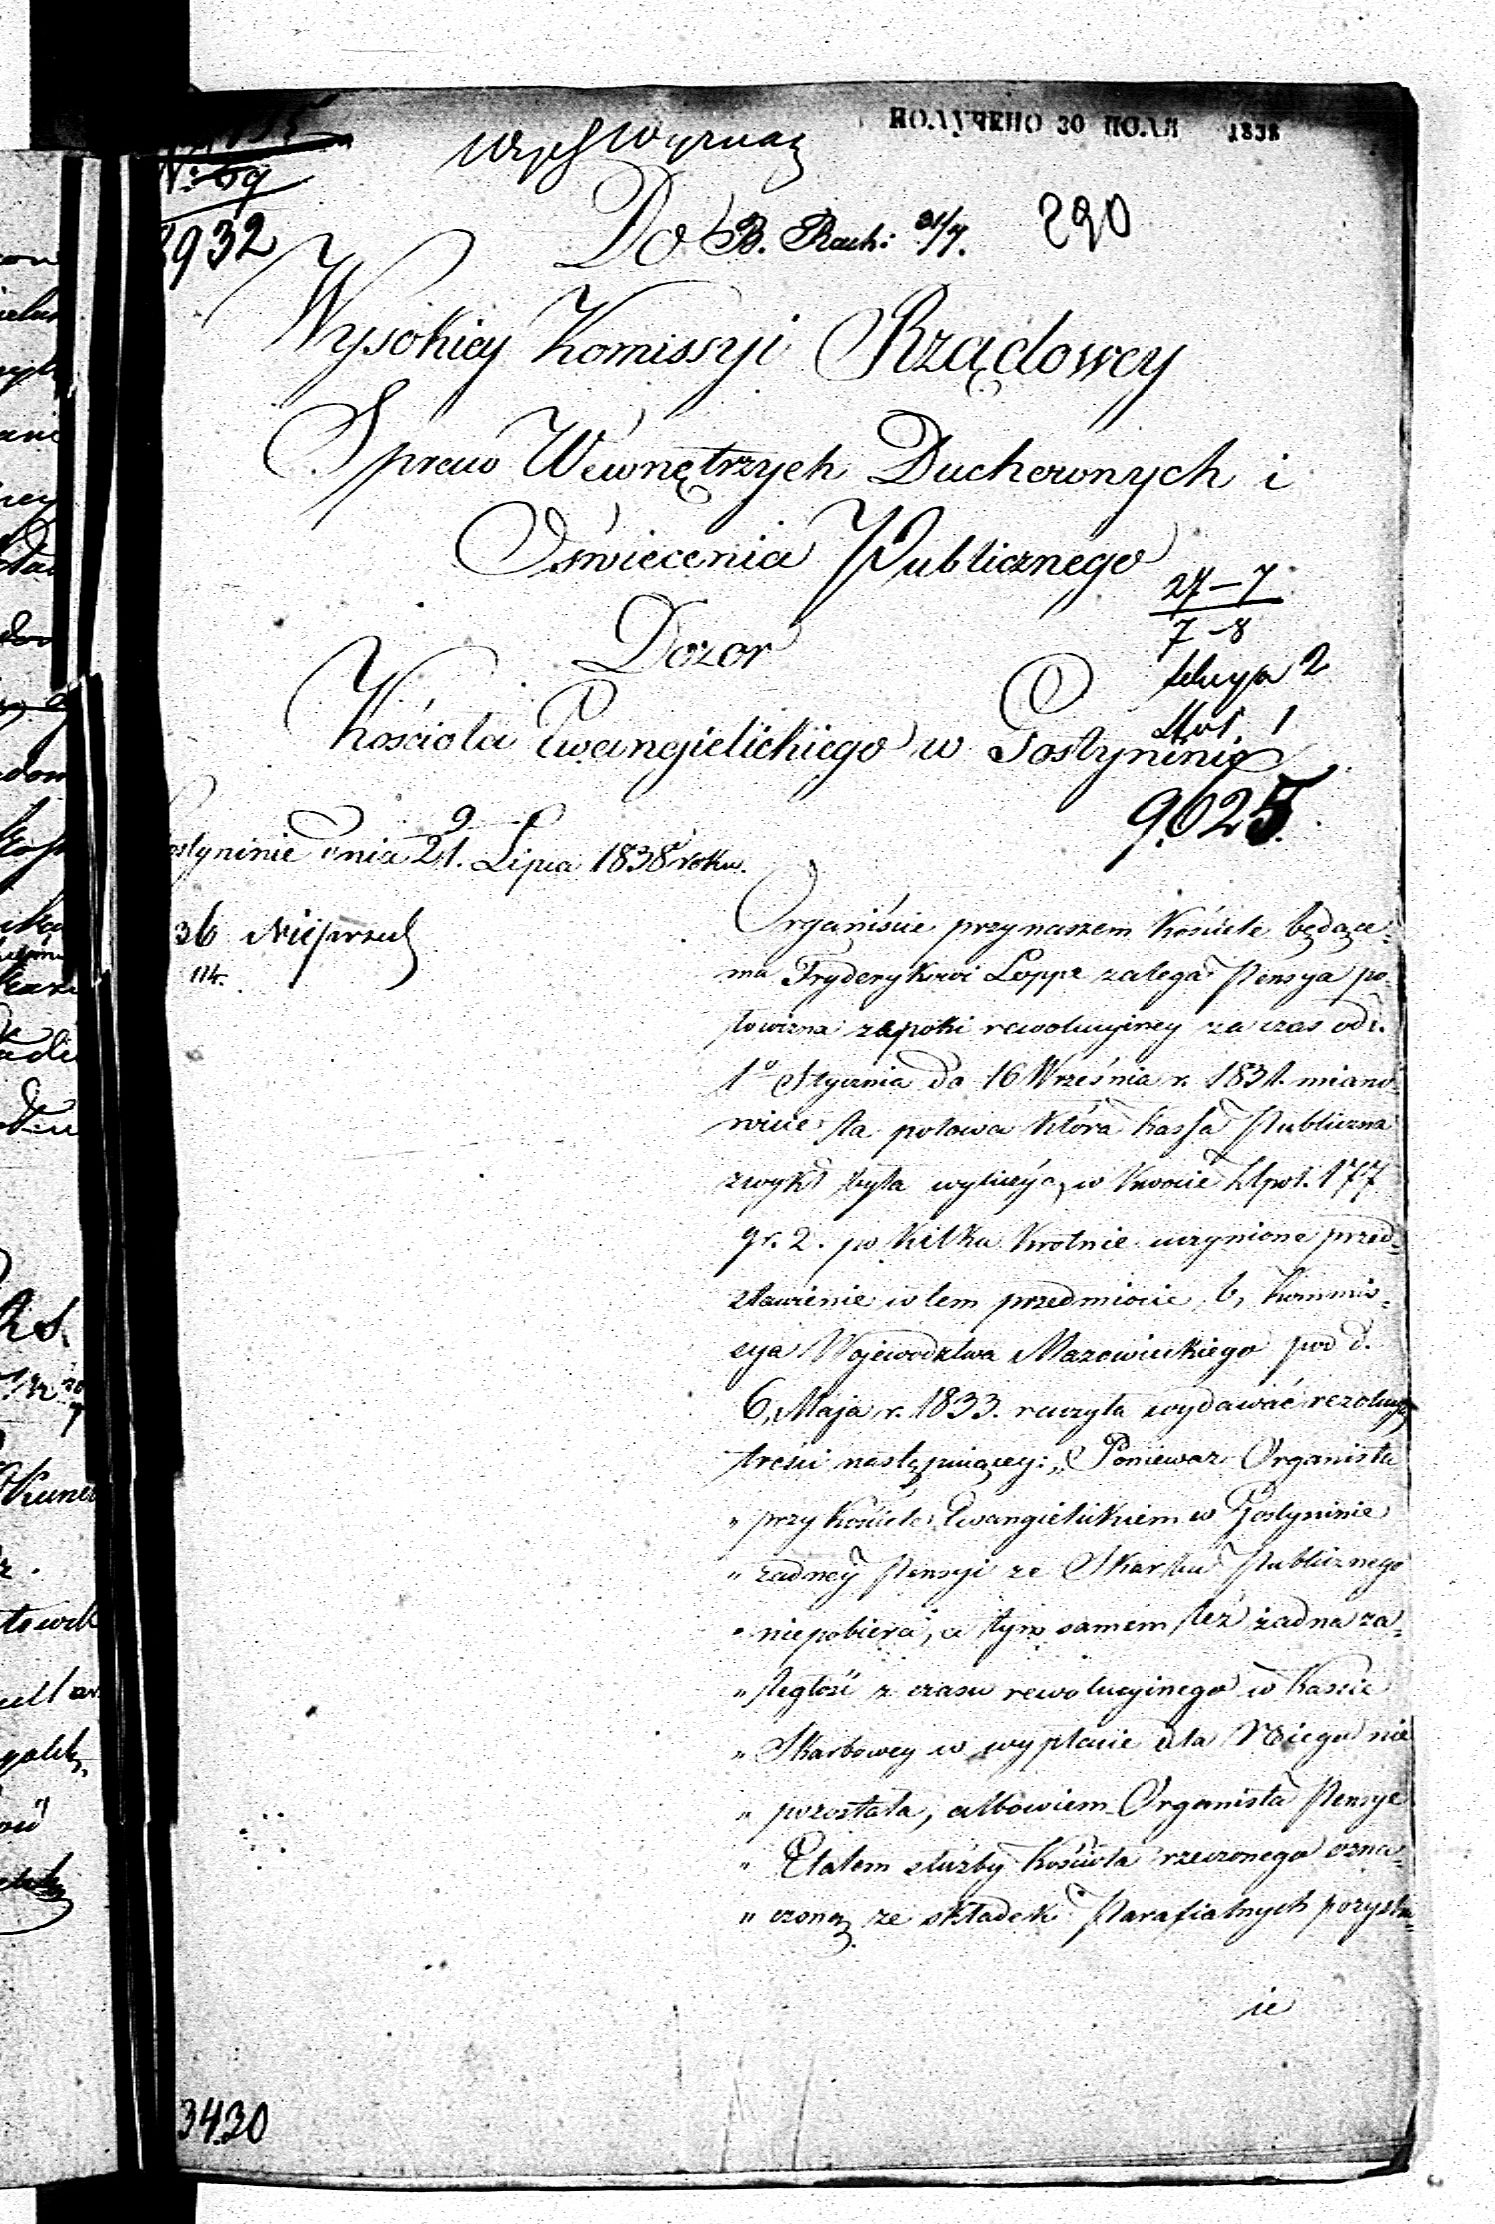 ПОЛУЧЕНО 30 ІЮЛЯ 1838
No 69
8932
Do
B. Rach: 31/7.
290
Wysokiey Komissyi Rządowey
Spraw Wewnętrzych Duchownych i
Oświecenia Publicznego
27-7
7-8
Dozor
2
1
Kościoła Ewangielickiego w Gostyninie
9625.
Gostyninie dnia 9/21. Lipca 1838 roku.
36
Organiście przy naszem Kościele będące=
mu Fryderykowi Loppe zalega Pensya po=
łowizna z epoki rewolucyiney za czas od
1o Stycznia do 16 Września r. 1831. miano=
wicie ta połowa którą Kassa Publiczna
zwykł była wyliczyć, w kwocie Złpol. 177
gr. 2. po kilku krotnie uczynione przed=
stawienie w tem przedmiocie, b, Kommis=
sya Wojewodztwa Mazowieckiego pod d.
6, Maja r. 1833. raczyła wydawać rezolucyę
treści następuiącey: „Ponieważ Organista
„ przy Kościele Ewangielickiem w Gostyninie
„ zadney Pensyi ze Skarbu Publicznego
„ niepobiera, a tym samem też żadna za=
„ ległość z czasu rewolucyinego w Kassie
„ Skarbowey w wypłacie dla Niego nie
„ pozostała, albowiem Organista Pensye
„ Etatem służby Kościoła rzeczonego ozna=
„ czoną ze składek Parafialnych pozyska=
ie
3420